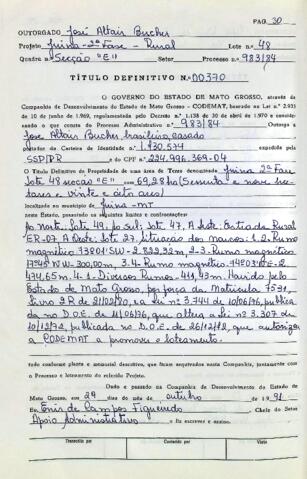 PAG. 30
OUTORGADO José Altair Bucher
Projeto Juina-2ª Fase - Rural Lote n.º 48
Quadra n.º Secção "E" Setor Processo n.º 983/84
TÍTULO DEFINITIVO N.º 00370
O GOVERNO DO ESTADO DE MATO GROSSO, através da
Companhia de Desenvolvimento do Estado de Mato Grosso - CODEMAT, baseado na Lei n.º 2.935
de 10 de junho de 1969, regulamentada pelo Decreto n.º 1.138 de 30 de abril de 1970 e considerando
o que consta do Processo Administrativo n.º 983/84 Outorga a
José Altair Bucher brasileiro, casado
portador da Carteira de Identidade n.º 1.430.574 expedida pela
SSP/PR e do CPF n.º 224.996.369-04
O Título Definitivo de Propriedade de uma área de Terras denominada Juina 2ª Fase
Lote 48 secção "E" com 69,28 ha (Sessenta e nove hec-
tares e vinte e oito ares)
localizada no município de Juina-MT
neste Estado, passando os seguintes limites e confrontações:
Ao norte: Lote 49, ao sul: Lote 47, A Leste: Estrada Rural
ER-07, A Oeste: Lote 27, Situação dos marcos: 1.2. Rumo
magnético 73801'SW-2.822,32 m, 2-3. Rumo magnético
NW-200,00 m, 3.4- Rumo magnético. 74203'NE-2
474,65 m. 4.1 - Diversos Rumos 411,43 m. Havido pelo
Estado de Mato Grosso, por força da Matrícula 7.591,
Livro 2R de 21/02/80, ea Lei nº 3.744 de 10/06/76, publica
da no D.O.E. de 11/06/76, que altera a Lei nº 3.307 de
10/12/72, publicada no D.O.E. de 26/12/72, que autorizou
a CODEMAT a promover o loteamento.
tudo conforme planta e memorial descritivo, que ficam arquivados nesta Companhia, juntamente com
o Processo e loteamento do referido Projeto.
Dado e passado na Companhia de Desenvolvimento do Estado de
Mato Grosso, em 29 dias do mês de outubro de 1991
Eu, Enir de Campos Figueiredo Chefe do Setor
Apoio Administrativo o fiz escrever e assino.
Transcrito por Conferido por Visto